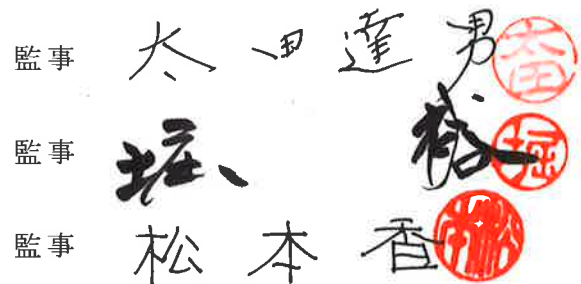 監事 太田達男 太田
監事 堀、裕 堀
監事 松本香 松本